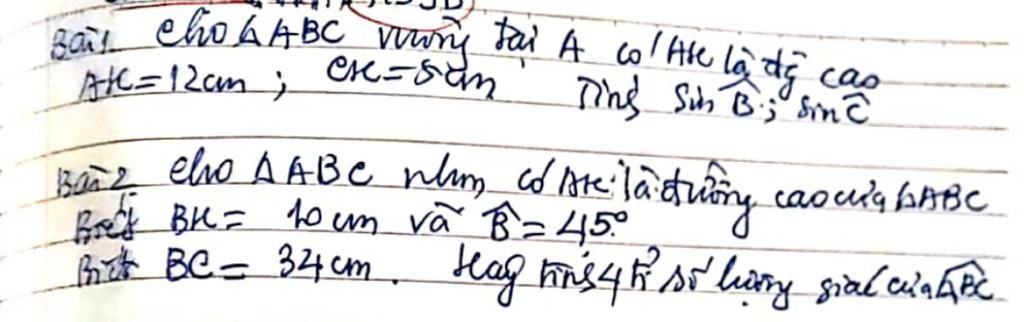 Bài 1. Cho ΔABC vuông tại A có AH là đg cao
AH = 12cm ; CH = 5cm Tính Sin B̂ ; Sin Ĉ
Bài 2. Cho ΔABC nhọn, có AH là đường cao của ΔABC
Biết BH = 10 cm và B̂ = 45°
Biết BC = 34cm. Hãy tính 4 tỉ số lượng giác của